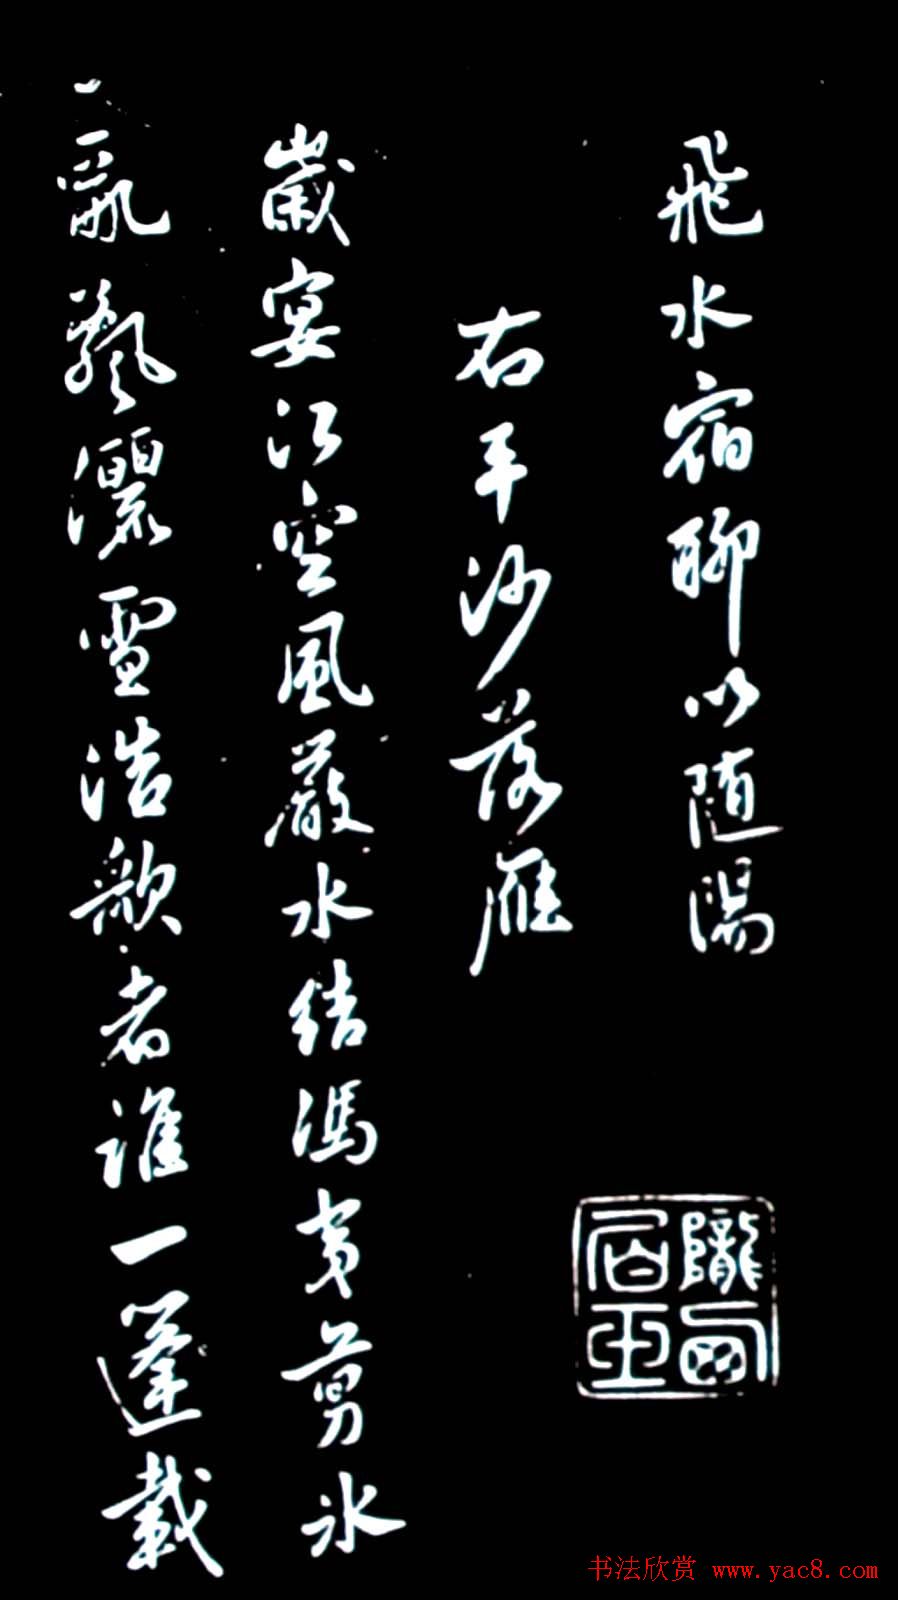 飛水宿聊以随陽
右平沙落雁
歲宴江空風嚴水結馮夷剪氷
亂飄灑雪浩歌者誰一蓬載
书法欣赏 www.yac8.com